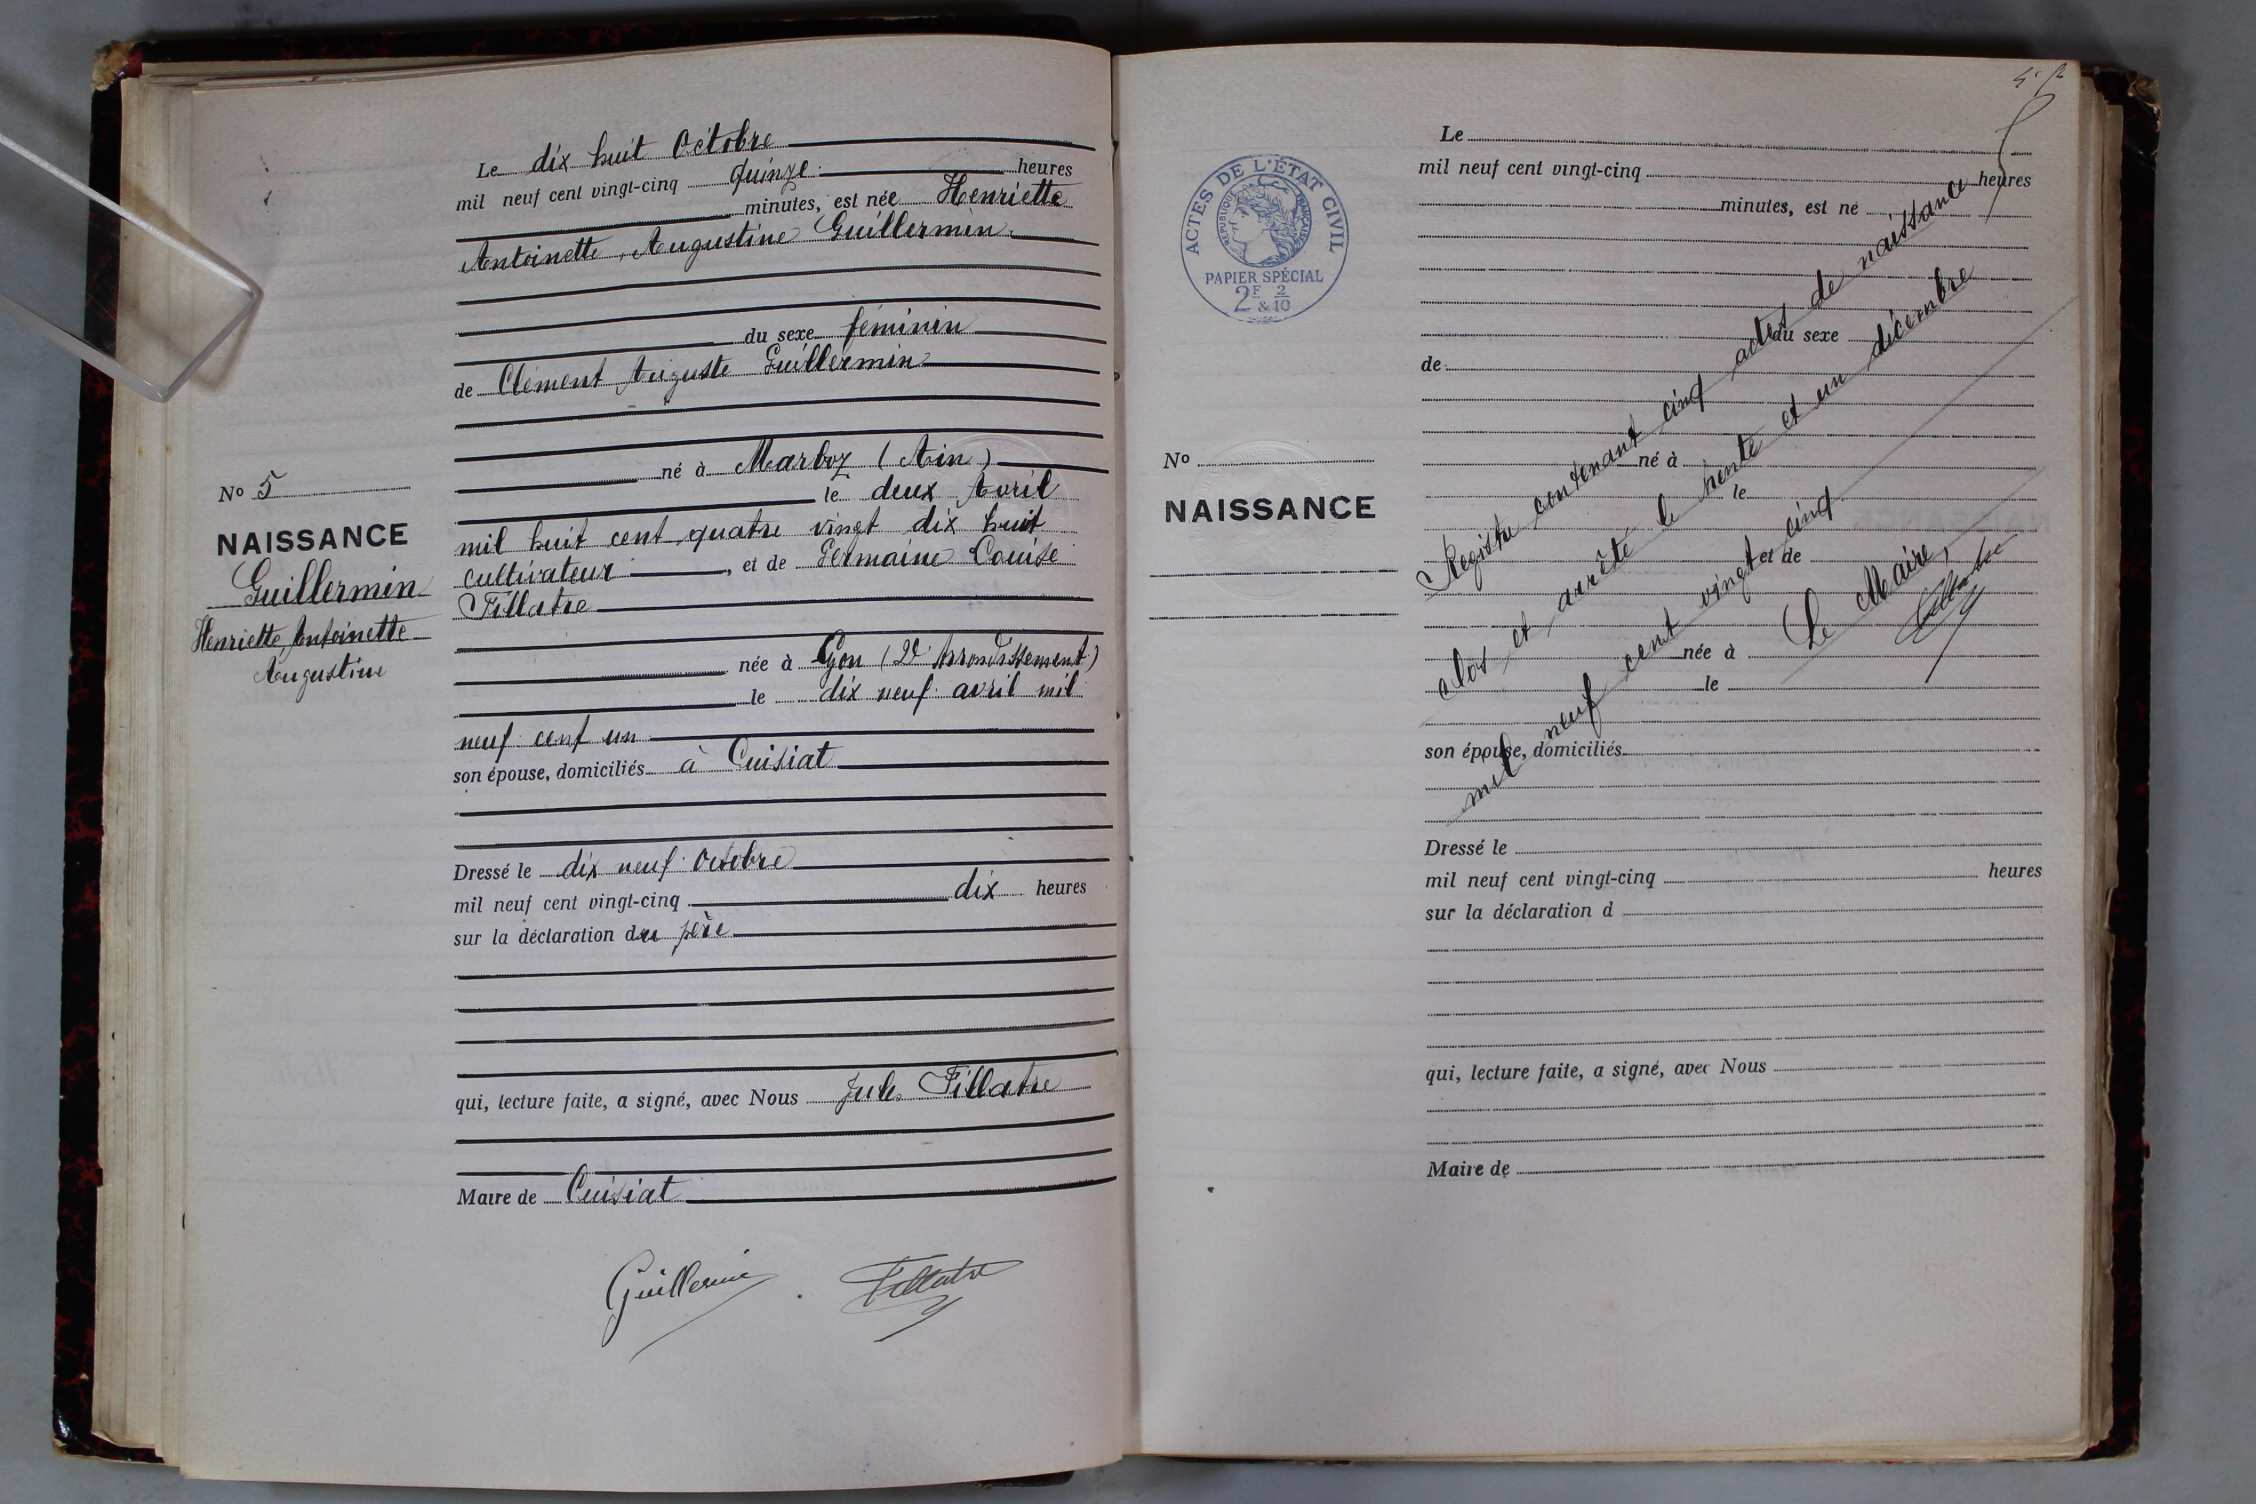 Le dix huit Octobre
mil neuf cent vingt-cinq quinze heures
minutes, est née Henriette
Antoinette, Augustine Guillermin
du sexe féminin
de Clément Auguste Guillermin
né à Marboz (Ain)
le deux Avril
mil huit cent quatre vingt dix huit
cultivateur, et de Germaine Louise
Fillatre
née à Lyon (2e Arrondissement)
le dix neuf avril mil
neuf cent un
son épouse, domiciliés à Cuisiat
Dressé le dix neuf Octobre
mil neuf cent vingt-cinq dix heures
sur la déclaration du père
qui, lecture faite, a signé, avec Nous Jules Fillatre
Maire de Cuisiat
Guillermin Fillatre
No 5
NAISSANCE
Guillermin
Henriette, Antoinette
Augustine
ACTES DE L'ÉTAT CIVIL
RÉPUBLIQUE FRANÇAISE
PAPIER SPÉCIAL
2F & 2/10
No
NAISSANCE
Le
mil neuf cent vingt-cinq heures
minutes, est né
du sexe
de
né à
le
et de
née à
le
son épouse, domiciliés
Dressé le
mil neuf cent vingt-cinq heures
sur la déclaration d
qui, lecture faite, a signé, avec Nous
Maire de
Registre contenant cinq actes de naissance
clos et arrêté le trente et un décembre
mil neuf cent vingt cinq
Le Maire,
Fillatre